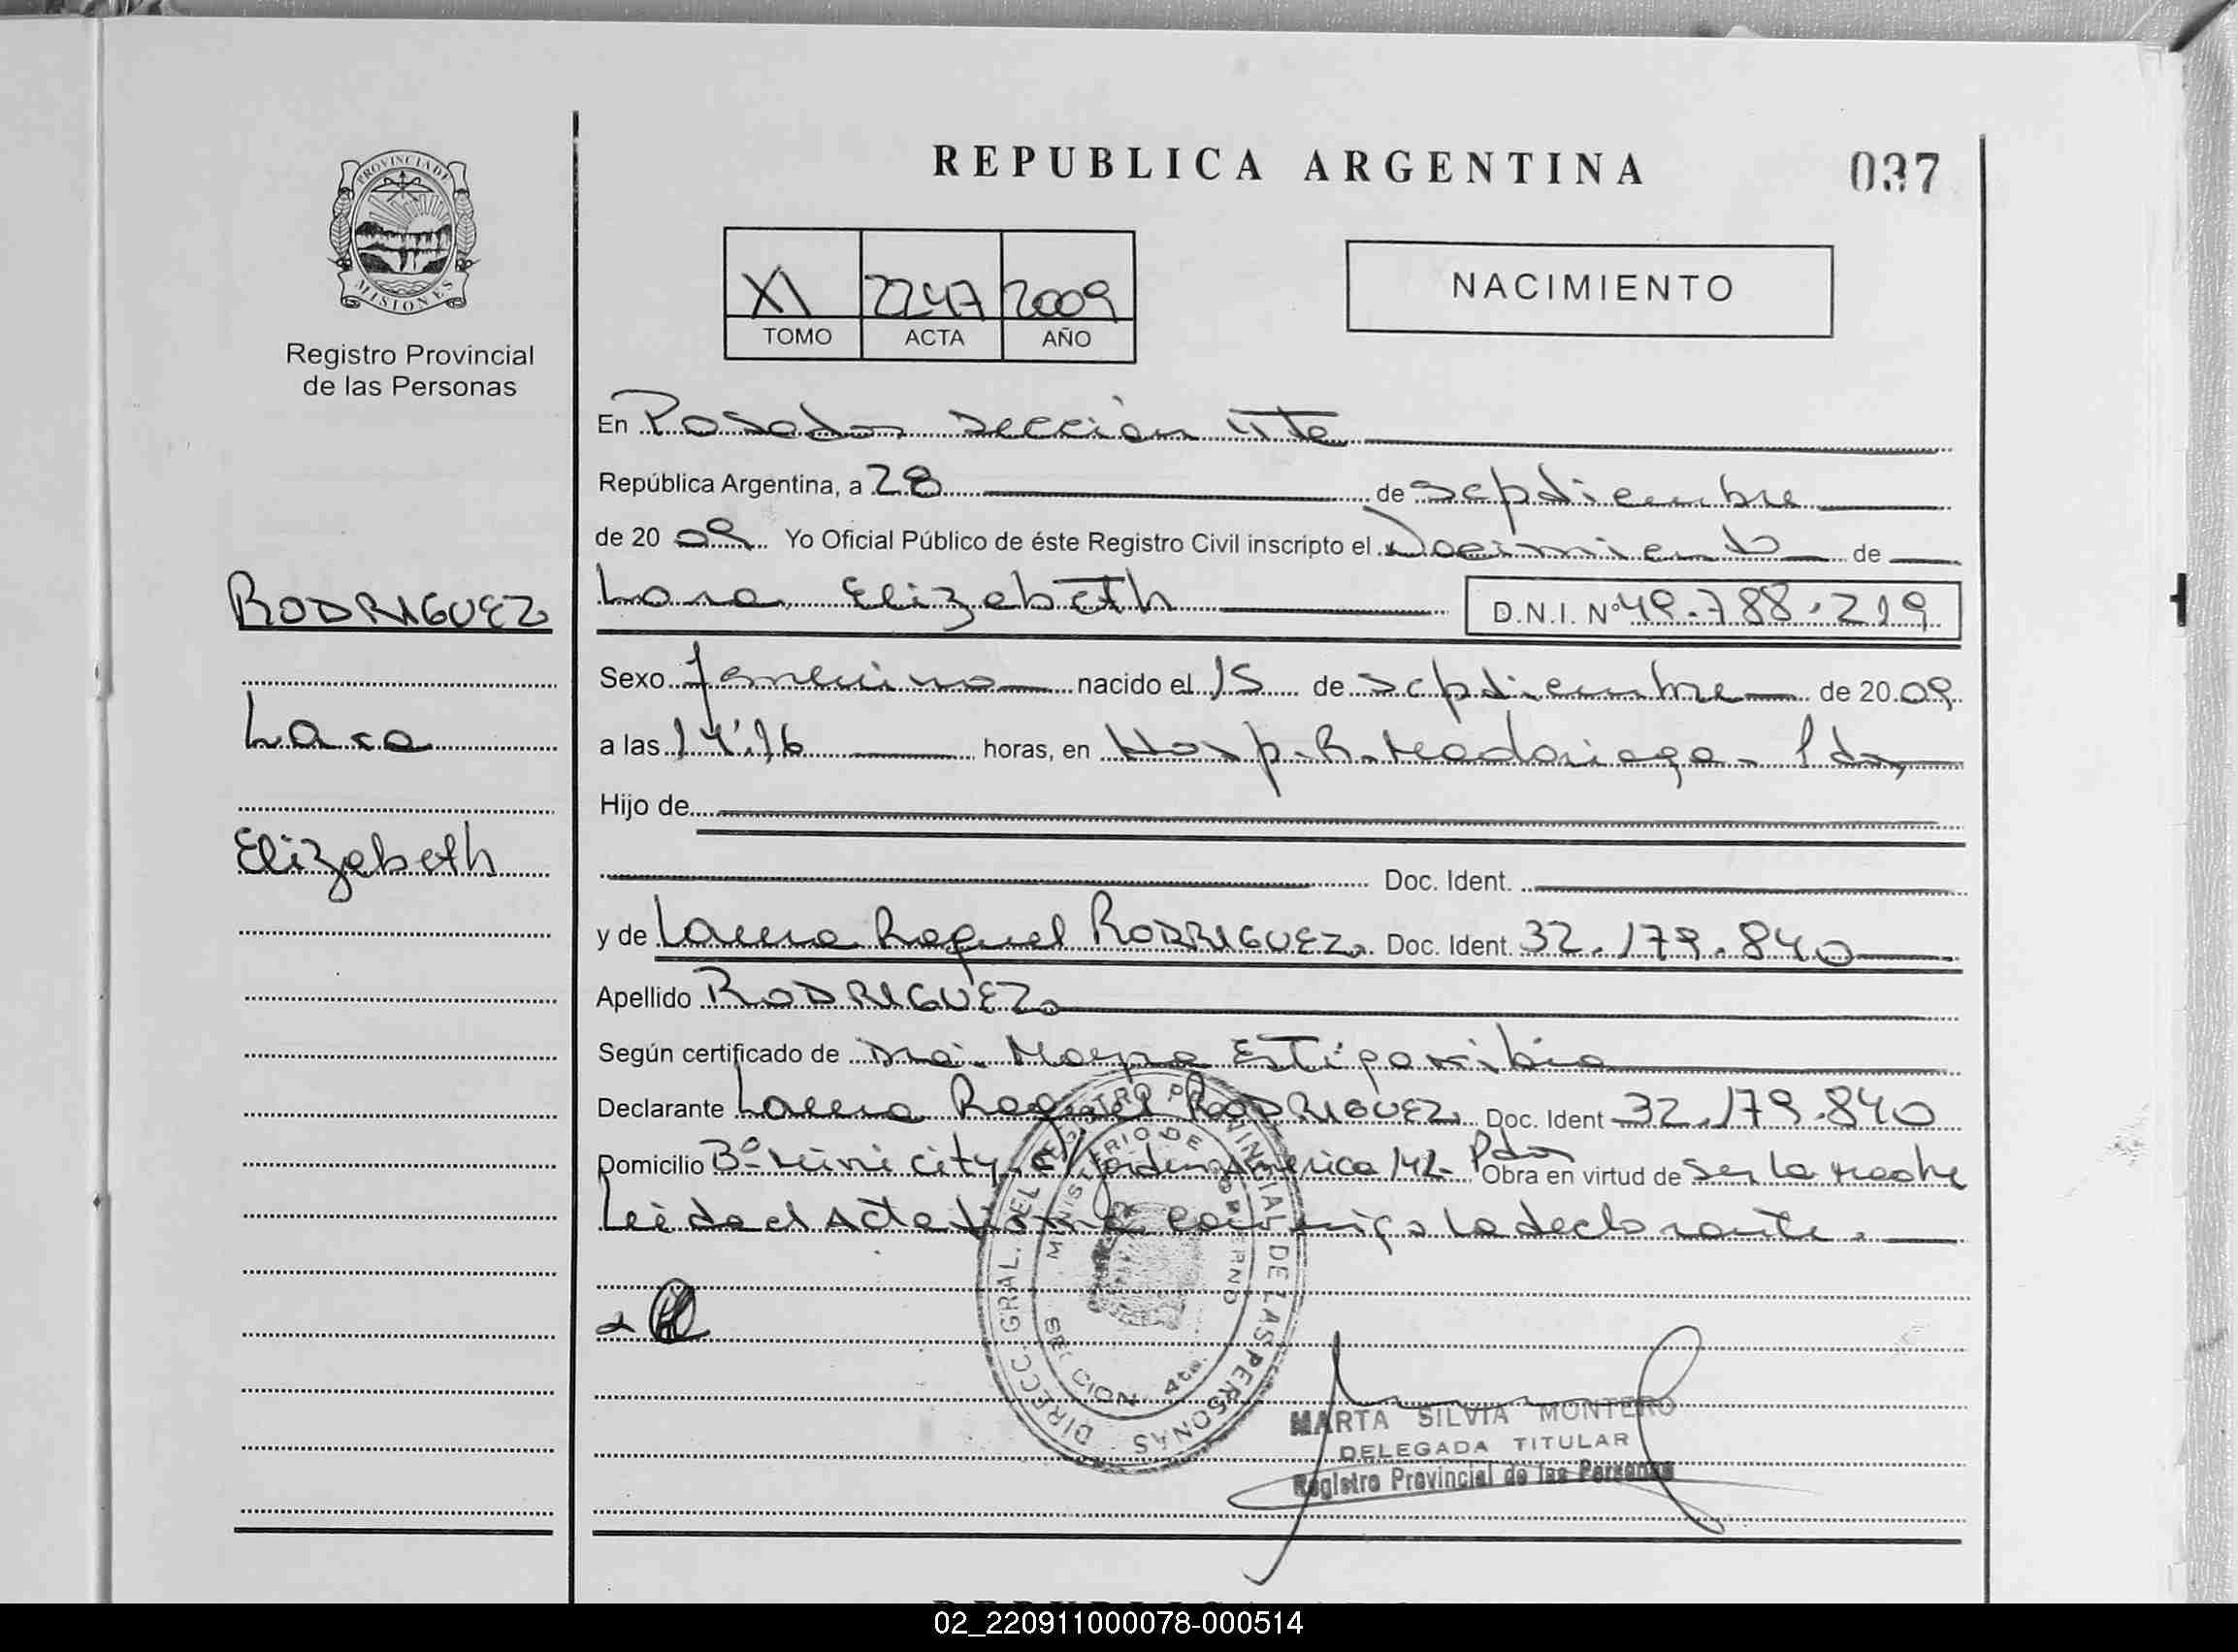 REPUBLICA ARGENTINA
037
PROVINCIA DE
MISIONES
Registro Provincial
de las Personas
XI 2247 2009
TOMO ACTA AÑO
NACIMIENTO
RODRIGUEZ
Lara
Elizabeth
En Posadas sección 4ta
República Argentina, a 28 de sepdiembre
de 20 09 Yo Oficial Público de éste Registro Civil inscripto el Nacimiento de
Lara Elizabeth D.N.I. Nº 49.788.219
Sexo femenino nacido el 15 de sepdiembre de 20 09
a las 14:16 horas, en Hosp. R. Madariaga. Pdas
Hijo de
Doc. Ident.
y de Laura Raquel RODRIGUEZ. Doc. Ident. 32.179.840
Apellido RODRIGUEZ
Según certificado de Dra. Mayra Estigarribia
Declarante Laura Raquel RODRIGUEZ Doc. Ident 32.179.840
Domicilio Bº Mini city. C/ Jorden America 142- Pdas Obra en virtud de ser la madre
Leída el Acta firma conmigo la declarante.
DIRECC. GRAL. DEL REGISTRO PROVINCIAL DE LAS PERSONAS
MINISTERIO DE GOBIERNO
CION 4ta.
MARTA SILVIA MONTERO
DELEGADA TITULAR
Registro Provincial de las Personas
02_220911000078-000514